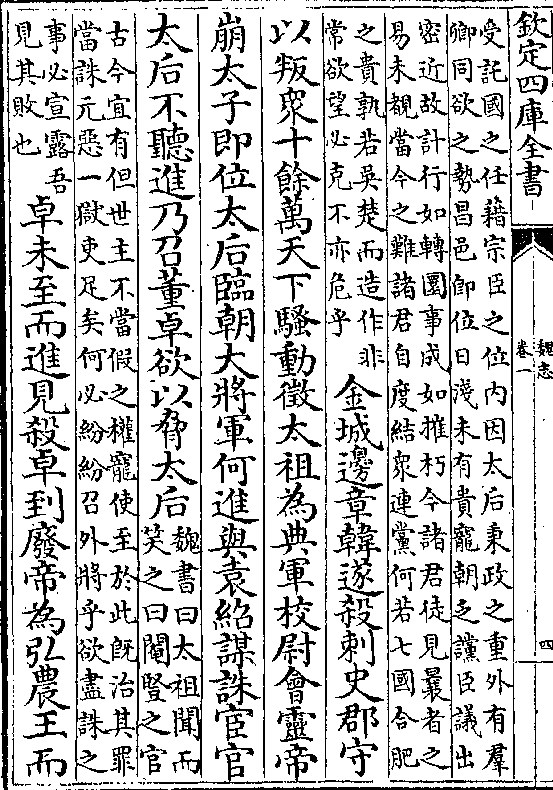 欽定四庫全書
魏志
卷一
四
受託國之任籍宗臣之位內因太后秉政之重外有羣
卿同欲之勢昌邑即位日淺未有貴寵朝乏讜臣議出
密近故計行如轉圜事成如摧朽今諸君徒見曩者之
易未覩當今之難諸君自度結衆連黨何若七國合肥
之貴孰若吳楚而造作非
常欲望必克不亦危乎
金城邊章韓遂殺刺史郡守
以叛衆十餘萬天下騷動徵太祖為典軍校尉會靈帝
崩太子即位太后臨朝大將軍何進與袁紹謀誅宦官
太后不聽進乃召董卓欲以脅太后
魏書曰太祖聞而
笑之曰閹豎之官
古今宜有但世主不當假之權寵使至於此既治其罪
當誅元惡一獄吏足矣何必紛紛召外將乎欲盡誅之
事必宣露吾
見其敗也
卓未至而進見殺卓到廢帝為弘農王而